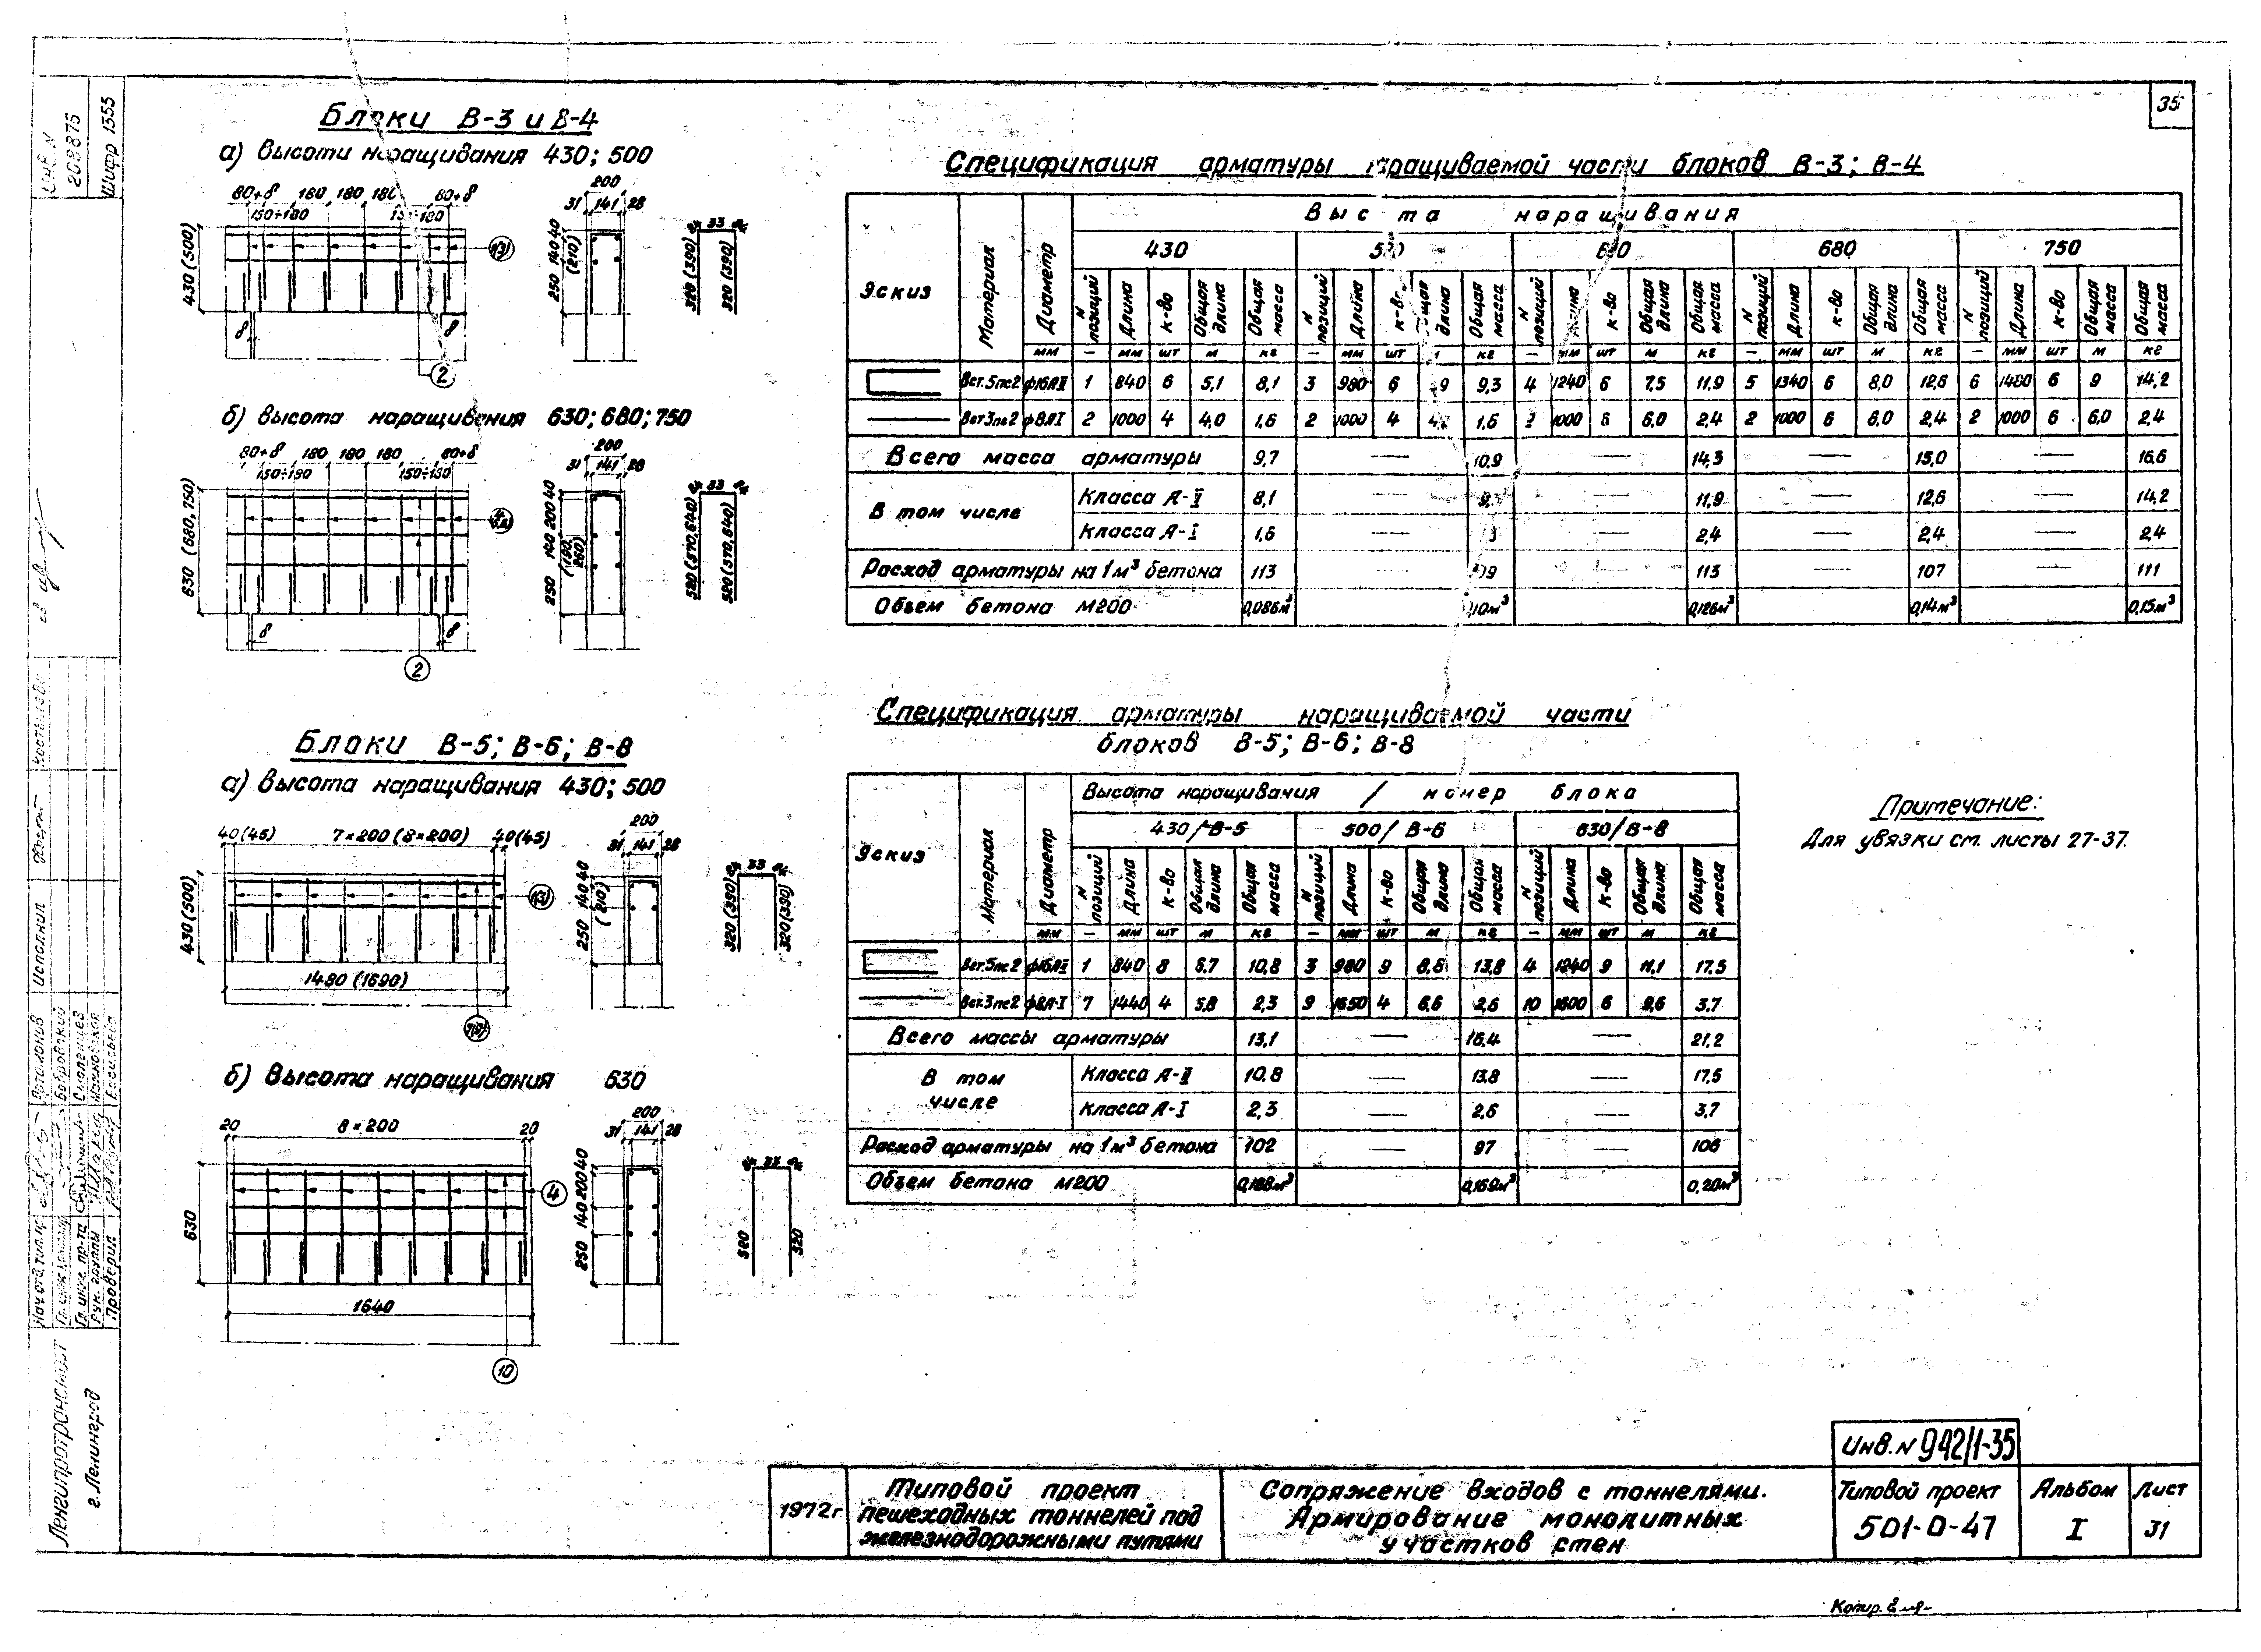 35
Инв. N
209875
Шифр 1555
Блоки В-3 и В-4
а) Высоти наращивания 430; 500
80+8 180 180 180 80+8
150÷180
200
31 141 28
33
430 (500)
250 140 40
(210)
320 (390)
320 (390)
8
8
2
б) Высота наращивания 630; 680; 750
80+8 180 180 180 80+8
150÷180 150÷180
200
31 141 28
33
630 (680, 750)
250 140 200 40
(190, 260)
520 (570, 640)
520 (570, 640)
8
8
2
Блоки В-5; В-6; В-8
а) Высота наращивания 430; 500
40(45) 7×200 (8×200) 40(45)
200
31 141 28
33
430 (500)
250 140 40
(210)
320 (390)
320 (390)
1480 (1690)
б) Высота наращивания 630
20 8×200 20
200
31 141 28
33
630
250 140 200 40
4
520
520
1640
10
Спецификация арматуры наращиваемой части блоков В-3; В-4
Эскиз
Материал
Диаметр
Выс та наращивания
430 680 750
N позиций Длина к-во Общая длина Общая масса
N позиций Длина к-во длина Общая масса
N позиций к-во Общая длина Общая масса
N позиций Длина к-во Общая длина Общая масса
N позиций Длина к-во Общая масса Общая масса
мм — мм шт м кг — мм шт кг — мм шт м кг — мм шт м кг — мм шт м кг
Вст.5пс2 ф16АII 1 840 6 5,1 8,1 3 980 6 9 9,3 4 1240 6 7,5 11,9 5 1340 6 8,0 12,6 6 1480 6 9 14,2
Вст3пс2 ф8АI 2 1000 4 4,0 1,6 2 1000 4 1,6 1000 6 6,0 2,4 2 1000 6 6,0 2,4 2 1000 6 6,0 2,4
Всего масса арматуры 9,7 — 10,9 — 14,3 — 15,0 — 16,6
В том числе
Класса А-II 8,1 — — 11,9 — 12,6 — 14,2
Класса А-I 1,6 — — 2,4 — 2,4 — 2,4
Расход арматуры на 1м³ бетона 113 — — 113 — 107 — 111
Объем бетона М200 0,086м³ 10м³ 0,126м³ 0,14м³ 0,15м³
Спецификация арматуры наращиваемой части
блоков В-5; В-6; В-8
Эскиз
Материал
Диаметр
Высота наращивания / номер блока
430/В-5 500/ В-6 630/В-8
N позиций Длина к-во Общая длина Общая масса
N позиций Длина к-во Общая длина Общая масса
N позиций Длина к-во Общая длина Общая масса
мм — мм шт м кг — мм шт м кг — мм шт м кг
Вст.5пс2 ф16АII 1 840 8 6.7 10,8 3 980 9 8,8 13,8 4 1240 9 11,1 17,5
Вст.3пс2 ф8А-I 7 1440 4 5,8 2,3 9 1650 4 6,6 2,6 10 1600 6 9,6 3,7
Всего массы арматуры 13,1 — 16,4 — 21,2
В том числе
Класса А-II 10,8 — 13,8 — 17,5
Класса А-I 2,3 — 2,6 — 3,7
Расход арматуры на 1м³ бетона 102 — 97 — 106
Объем бетона М200 0,128м³ 0,169м³ 0,20м³
Примечание:
Для увязки см. листы 27-37.
Исполнил
Проверил
Рук. группы
Ленгипротрансмост
г. Ленинград
Инв. N 942/1-35
1972г.
Типовой проект
пешеходных тоннелей под
железнодорожными путями
Сопряжение входов с тоннелями.
Армирование монолитных
участков стен
Типовой проект
501-0-47
Альбом
I
Лист
31
Копир.